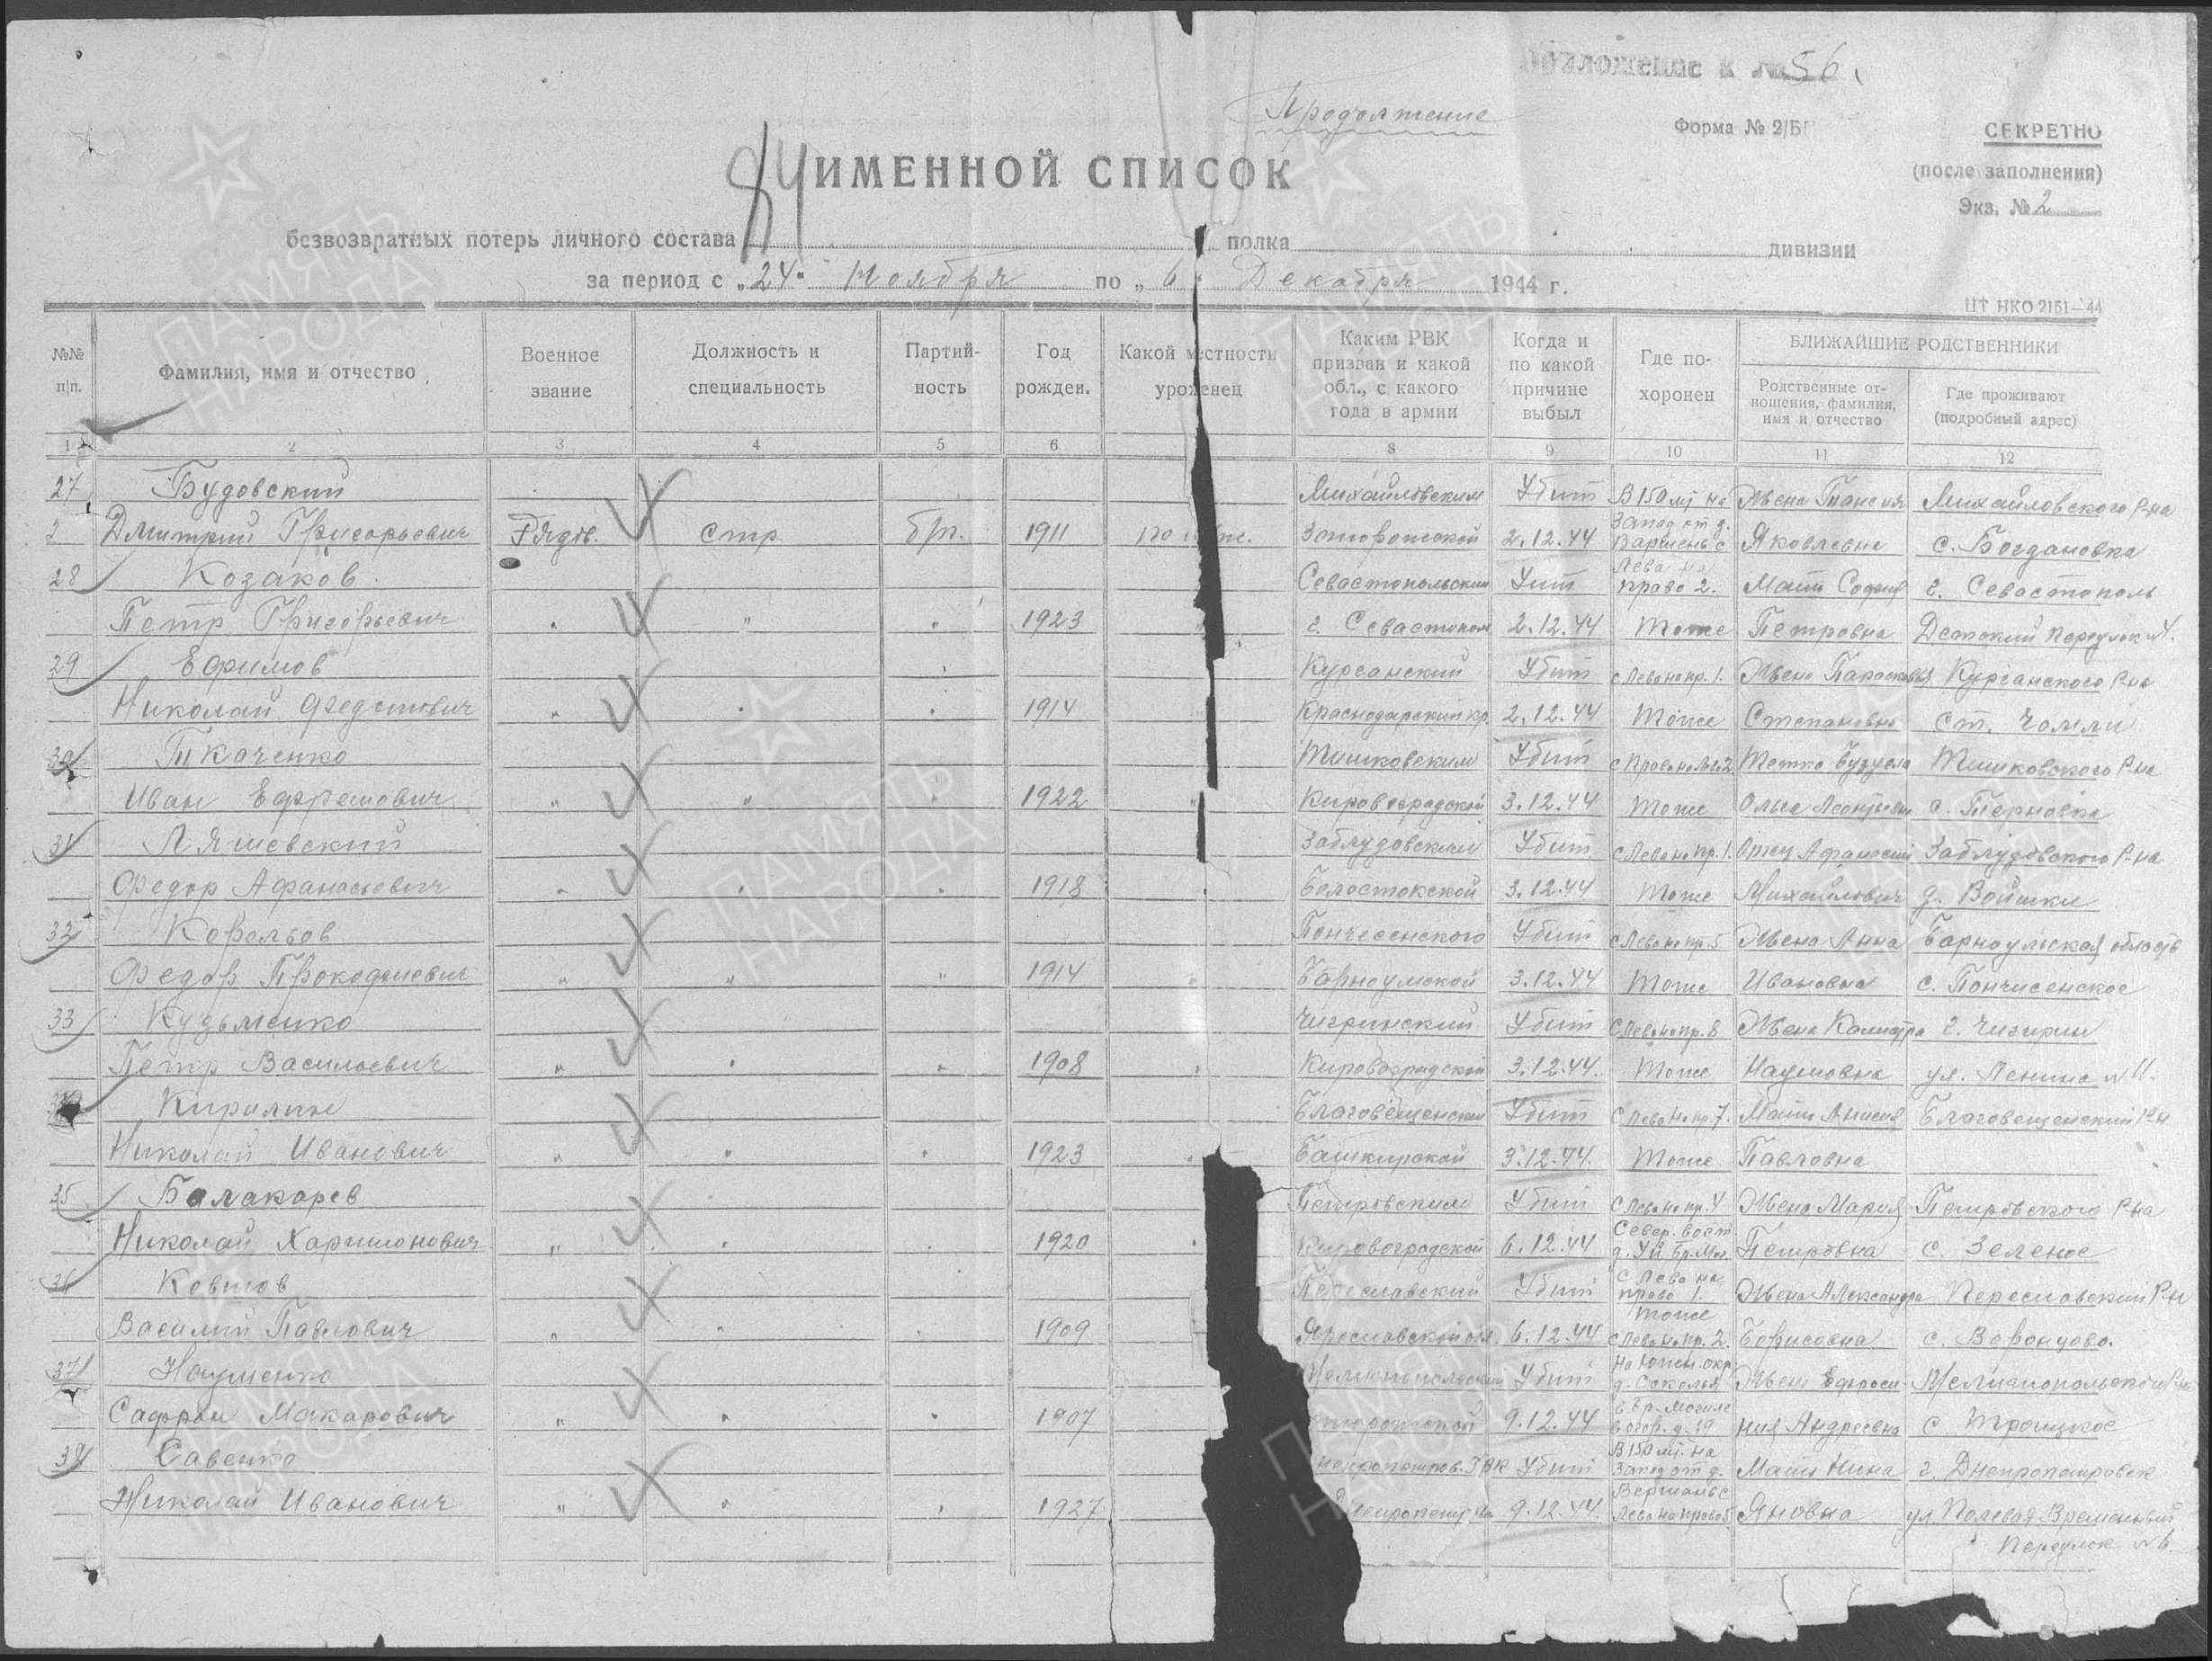 Приложение к № 56.
Продолжение
Форма № 2/БП
СЕКРЕТНО
(после заполнения)
Экз. № 2
84
ИМЕННОЙ СПИСОК
безвозвратных потерь личного состава полка дивизии
за период с „24“ Ноября по „6“ Декабря 1944 г.
ЦТ НКО 2151—44
№№ п/п. Фамилия, имя и отчество Военное звание Должность и специальность Партий-ность Год рожден. Какой местности уроженец Каким РВК призван и какой обл., с какого года в армии Когда и по какой причине выбыл Где по-хоронен БЛИЖАЙШИЕ РОДСТВЕННИКИ
Родственные от-ношения, фамилия, имя и отчество Где проживают (подробный адрес)
1 2 3 4 5 6 8 9 10 11 12
27 Будовский Михайловским Убит В 150 мт на Жена Михайловского р-на
Дмитрий Григорьевич Рядов. стр. б/п. 1911 Запорожской 2.12.44 Запад от д. Яковлевна с. Богдановка
28 Козаков Севастопольским Лева на право 2. Мать София г. Севастополь
Петр Григорьевич " " " 1923 г. Севастополь 2.12.44 Тоже Петровна Детский переулок
29 Ефимов Курганский Убит с Лева на пр. 1. Жена Курганского р-на
Николай " " " 1914 Краснодарский кр. 2.12.44 Тоже Степановна ст.
30 Ткаченко Тишковским Убит Тетка Тишковского р-на
Иван Ефремович " " " 1922 " Кировоградской 3.12.44 Тоже Ольга с. Терновка
31 Ляшевский Заблудовским Убит с Лева на пр. 1. Отец Афанасий Заблудовского р-на
Федор Афанасьевич " " " 1918 " Белостокской 3.12.44 Тоже Михайлович д. Войшки
32 Корольов Убит с Лева на пр. 5 Жена Анна Барнаульская область
Федор Прокофиевич " " " 1914 " 3.12.44 Тоже Ивановна с.
33 Кузьменко Чигринский Убит с Лева на пр. 6 Жена г. Чигирин
Петр Васильевич " " " 1908 " Кировоградской 3.12.44. Тоже Наумовна ул. Ленина № 11.
Кирилин Благовещенским Убит с Лева на пр. 7. Мать Благовещенский р-н
Николай Иванович " " " 1923 " Башкирской 3.12.44. Тоже Павловна
35 Балакарев Петровским Убит с Лева на пр. 4 Жена Мария Петровского р-на
Николай Харитонович " " " 1920 " Кировоградской 6.12.44 Север. вост. Петровна с. Зеленое
36 Ковтов Переславский Убит с Лева на право 1. Жена Александра Переславский р-н
Василий Павлович " " " 1909 Ярославской обл 6.12.44 Тоже с Лева на пр. 2. Борисовна с. Воронцово.
37 Науменко Мелитопольским Убит На южн. окр. Жена Ефроси- Мелитопольский р-н
Сафрон Макарович " " " 1907 9.12.44 в бр. могиле ния Андреевна с Троицкое
Савенко Убит В 150 мт. на Запад от д. Мать Нина г. Днепропетровск
Николай Иванович " " " 1927 9.12.44. Лева на право 5 Яновна ул. Полевая Временный
Переулок № 6
ПАМЯТЬ НАРОДА